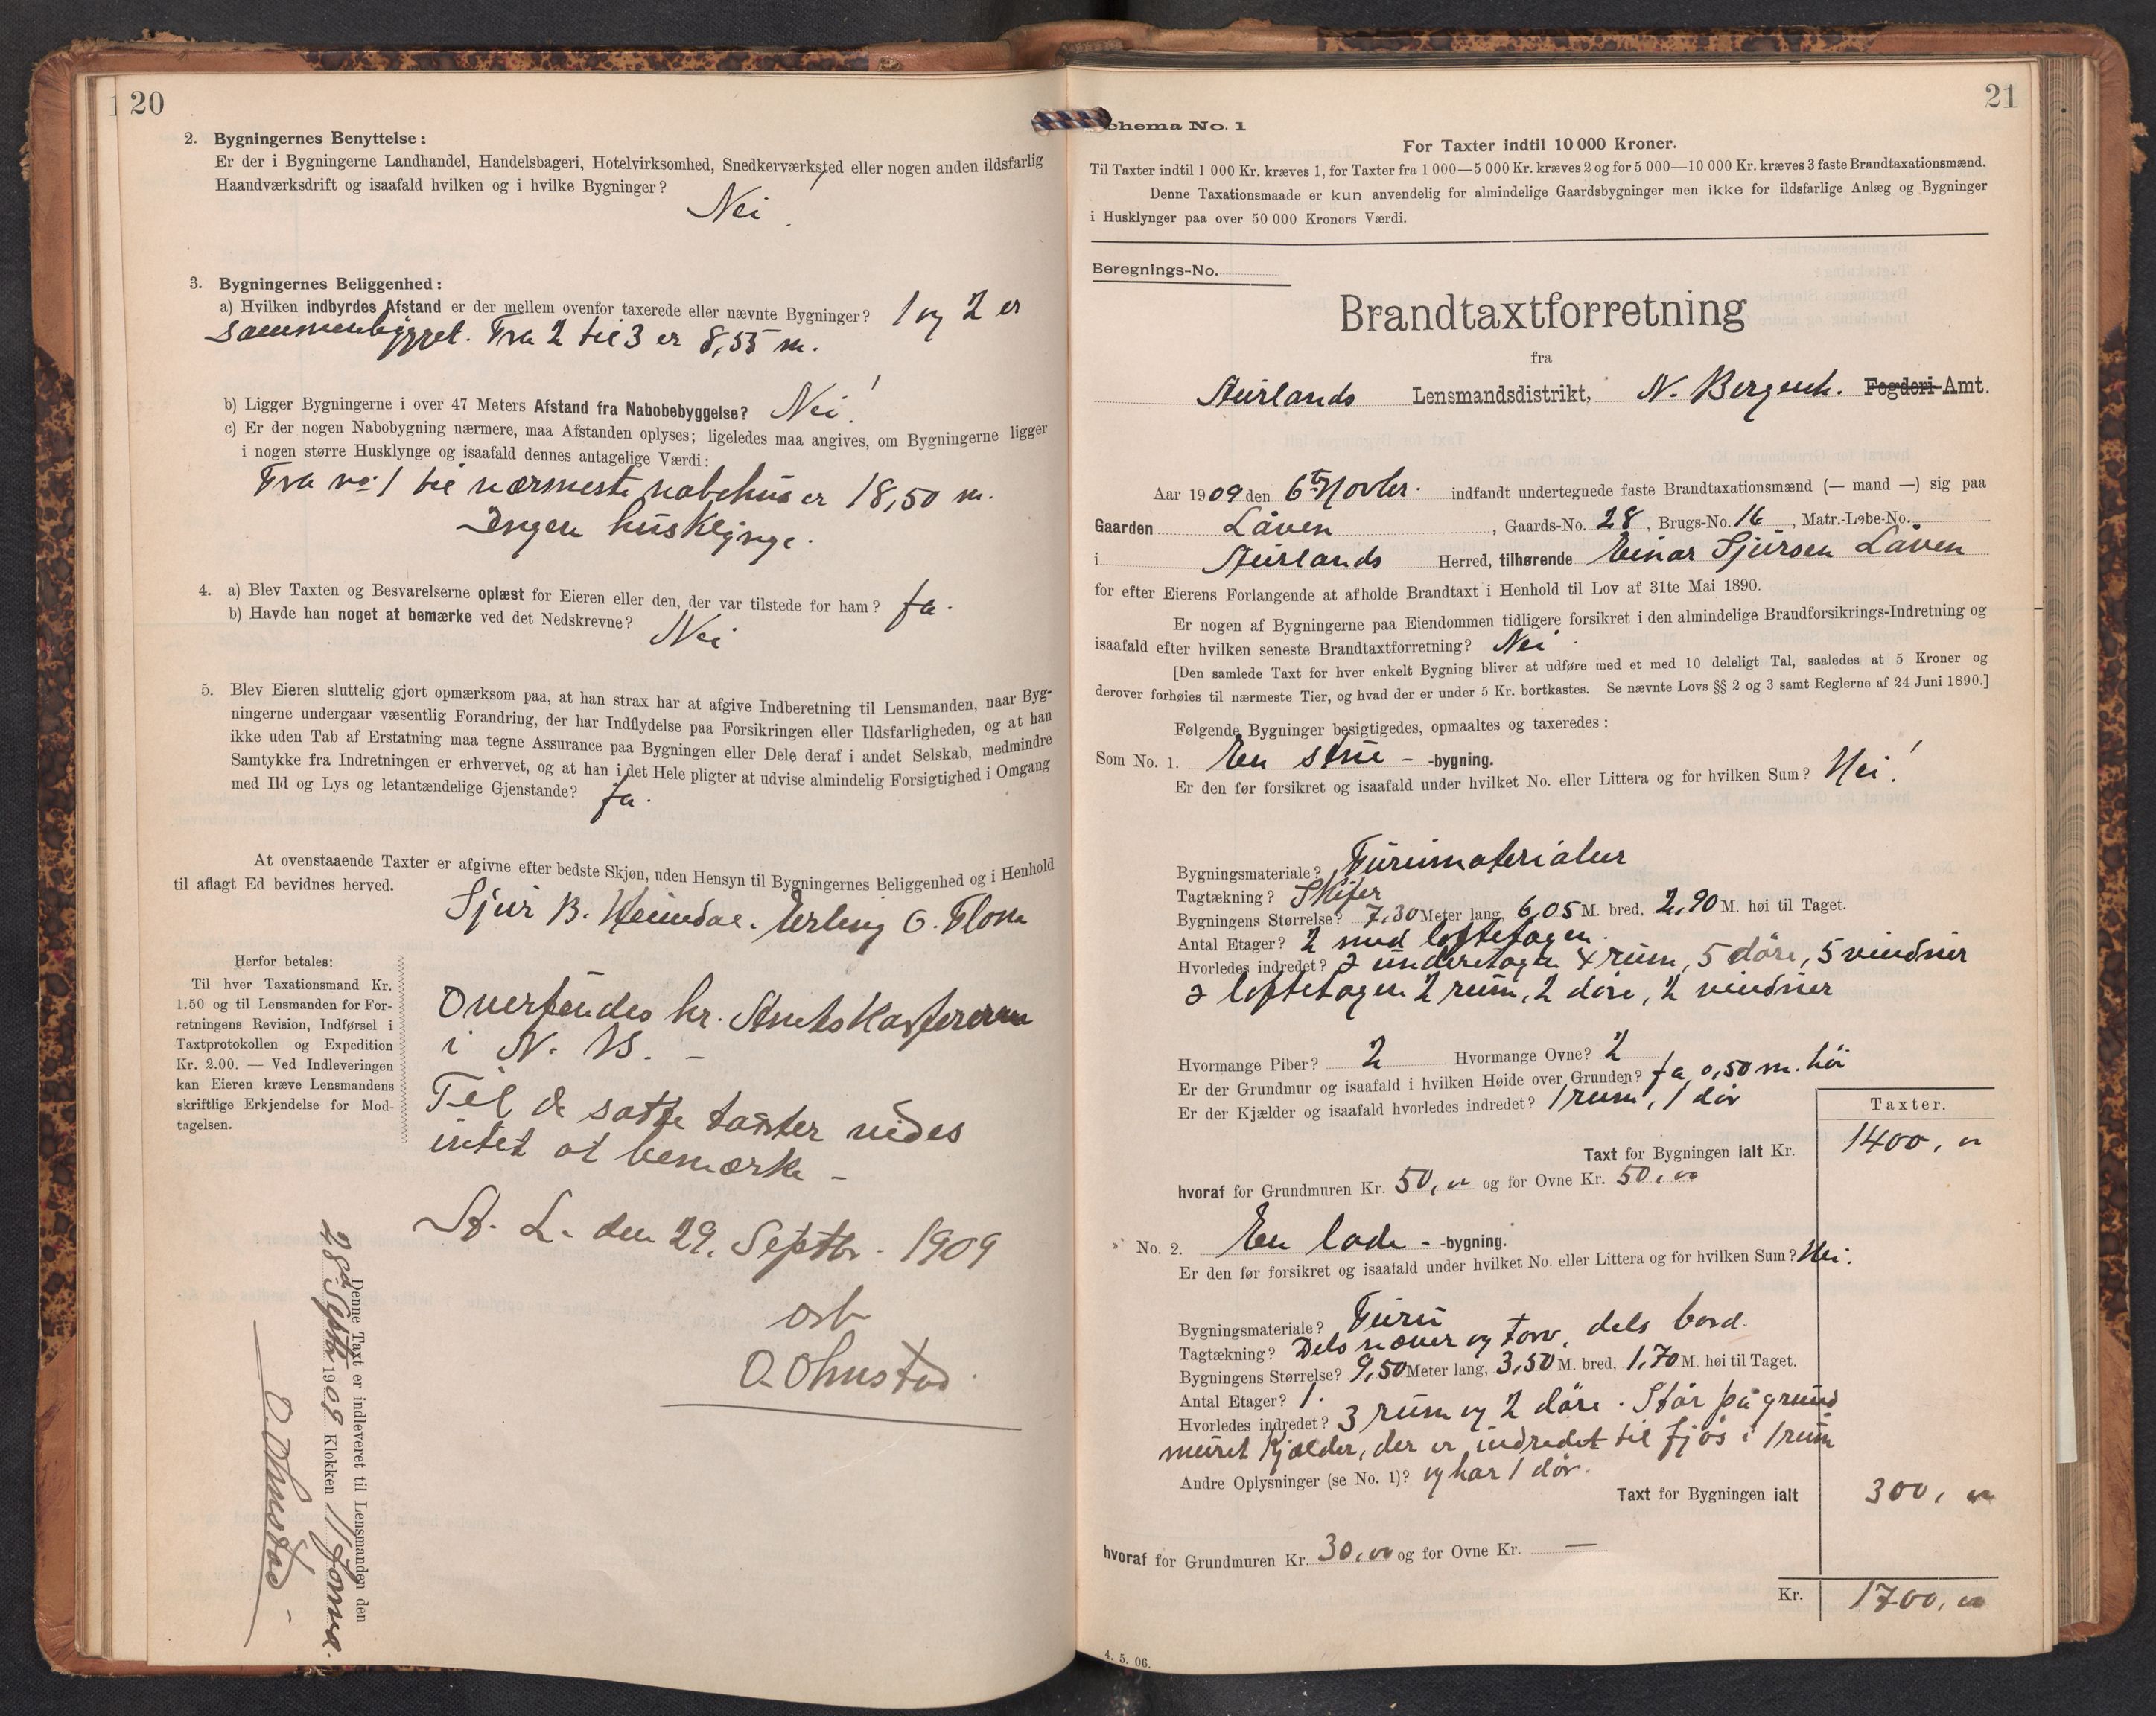 20
2. Bygningernes Benyttelse:
Er der i Bygningerne Landhandel, Handelsbageri, Hotelvirksomhed, Snedkerværksted eller nogen anden ildsfarlig
Haandværksdrift og isaafald hvilken og i hvilke Bygninger?
Nei.
3. Bygningernes Beliggenhed:
a) Hvilken indbyrdes Afstand er der mellem ovenfor taxerede eller nævnte Bygninger? 1 og 2 er
sammenbygget. Fra 2 til 3 er 8,55 m.
b) Ligger Bygningerne i over 47 Meters Afstand fra Nabobebyggelse? Nei!
c) Er der nogen Nabobygning nærmere, maa Afstanden oplyses; ligeledes maa angives, om Bygningerne ligger
i nogen større Husklynge og isaafald dennes antagelige Værdi:
Fra no 1 til nærmeste nabohus er 18,50 m.
Ingen husklynge.
4. a) Blev Taxten og Besvarelserne oplæst for Eieren eller den, der var tilstede for ham? Ja.
b) Havde han noget at bemærke ved det Nedskrevne?
Nei
5. Blev Eieren sluttelig gjort opmærksom paa, at han strax har at afgive Indberetning til Lensmanden, naar Byg-
ningerne undergaar væsentlig Forandring, der har Indflydelse paa Forsikringen eller Ildsfarligheden, og at han
ikke uden Tab af Erstatning maa tegne Assurance paa Bygningen eller Dele deraf i andet Selskab, medmindre
Samtykke fra Indretningen er erhvervet, og at han i det Hele pligter at udvise almindelig Forsigtighed i Omgang
med Ild og Lys og letantændelige Gjenstande? Ja.
At ovenstaaende Taxter er afgivne efter bedste Skjøn, uden Hensyn til Bygningernes Beliggenhed og i Henhold
til aflagt Ed bevidnes herved.
Sjur B. Heimdal. Erling O. Flom
Herfor betales:
Til hver Taxationsmand Kr.
1.50 og til Lensmanden for For-
retningens Revision, Indførsel i
Taxtprotokollen og Expedition
Kr. 2.00. — Ved Indleveringen
kan Eieren kræve Lensmandens
skriftlige Erkjendelse for Mod-
tagelsen.
Oversendes hr. Amtskassereren
i N. B. -
Til de satte taxter vides
intet at bemærke -
A. L. den 29. Septbr. 1909
O. Ohnstad
Denne Taxt er indleveret til Lensmanden den
28de Septbr 1909 Klokken 11 form.
O. Ohnstad -
21
Schema No. 1
For Taxter indtil 10 000 Kroner.
Til Taxter indtil 1 000 Kr. kræves 1, for Taxter fra 1 000—5 000 Kr. kræves 2 og for 5 000—10 000 Kr. kræves 3 faste Brandtaxationsmænd.
Denne Taxationsmaade er kun anvendelig for almindelige Gaardsbygninger men ikke for ildsfarlige Anlæg og Bygninger
i Husklynger paa over 50 000 Kroners Værdi.
Beregnings-No.
Brandtaxtforretning
fra
Aurlands Lensmandsdistrikt, N. Bergenh. Fogderi Amt.
Aar 1909 den 6te Novbr. indfandt undertegnede faste Brandtaxationsmænd (— mand —) sig paa
Gaarden Låven, Gaards-No. 28, Brugs-No. 16, Matr.-Løbe-No.
i Aurlands Herred, tilhørende Einar Sjursen Låven
for efter Eierens Forlangende at afholde Brandtaxt i Henhold til Lov af 31te Mai 1890.
Er nogen af Bygningerne paa Eiendommen tidligere forsikret i den almindelige Brandforsikrings-Indretning og
isaafald efter hvilken seneste Brandtaxtforretning? Nei
[Den samlede Taxt for hver enkelt Bygning bliver at udføre med et med 10 deleligt Tal, saaledes at 5 Kroner og
derover forhøies til nærmeste Tier, og hvad der er under 5 Kr. bortkastes. Se nævnte Lovs §§ 2 og 3 samt Reglerne af 24 Juni 1890.]
Følgende Bygninger besigtigedes, opmaaltes og taxeredes:
Som No. 1. En stue - -bygning.
Er den før forsikret og isaafald under hvilket No. eller Littera og for hvilken Sum? Nei!
Bygningsmateriale? Furumaterialier
Tagtækning? Skifer
Bygningens Størrelse? 7,30 Meter lang, 6,05 M. bred, 2,90 M. høi til Taget.
Antal Etager? 2 med loftetagen.
Hvorledes indredet? I underetagen 4 rum, 5 döre, 5 vinduer
I loftetagen 2 rum, 2 döre, 2 vinduer
Hvormange Piber? 2 Hvormange Ovne? 2
Er der Grundmur og isaafald i hvilken Høide over Grunden? Ja, 0,50 m. høi
Er der Kjælder og isaafald hvorledes indredet? 1 rum, 1 dör
Taxter.
Taxt for Bygningen ialt Kr. 1400, 00
hvoraf for Grundmuren Kr. 50, 00 og for Ovne Kr. 50, 00
No. 2. En lade - -bygning.
Er den før forsikret og isaafald under hvilket No. eller Littera og for hvilken Sum? Nei.
Bygningsmateriale? Furu
Tagtækning? Dels næver og torv, dels bord.
Bygningens Størrelse? 9,50 Meter lang, 3,50 M. bred, 1,70 M. høi til Taget.
Antal Etager? 1.
Hvorledes indredet? 3 rum og 2 döre. Står på grund
muret Kjælder, der er indredet til fjös i 1 rum
Andre Oplysninger (se No. 1)? og har 1 dör.
Taxt for Bygningen ialt 300, 00
hvoraf for Grundmuren Kr. 30, 00 og for Ovne Kr. —
Kr. 1700, 00
4. 5. 06.